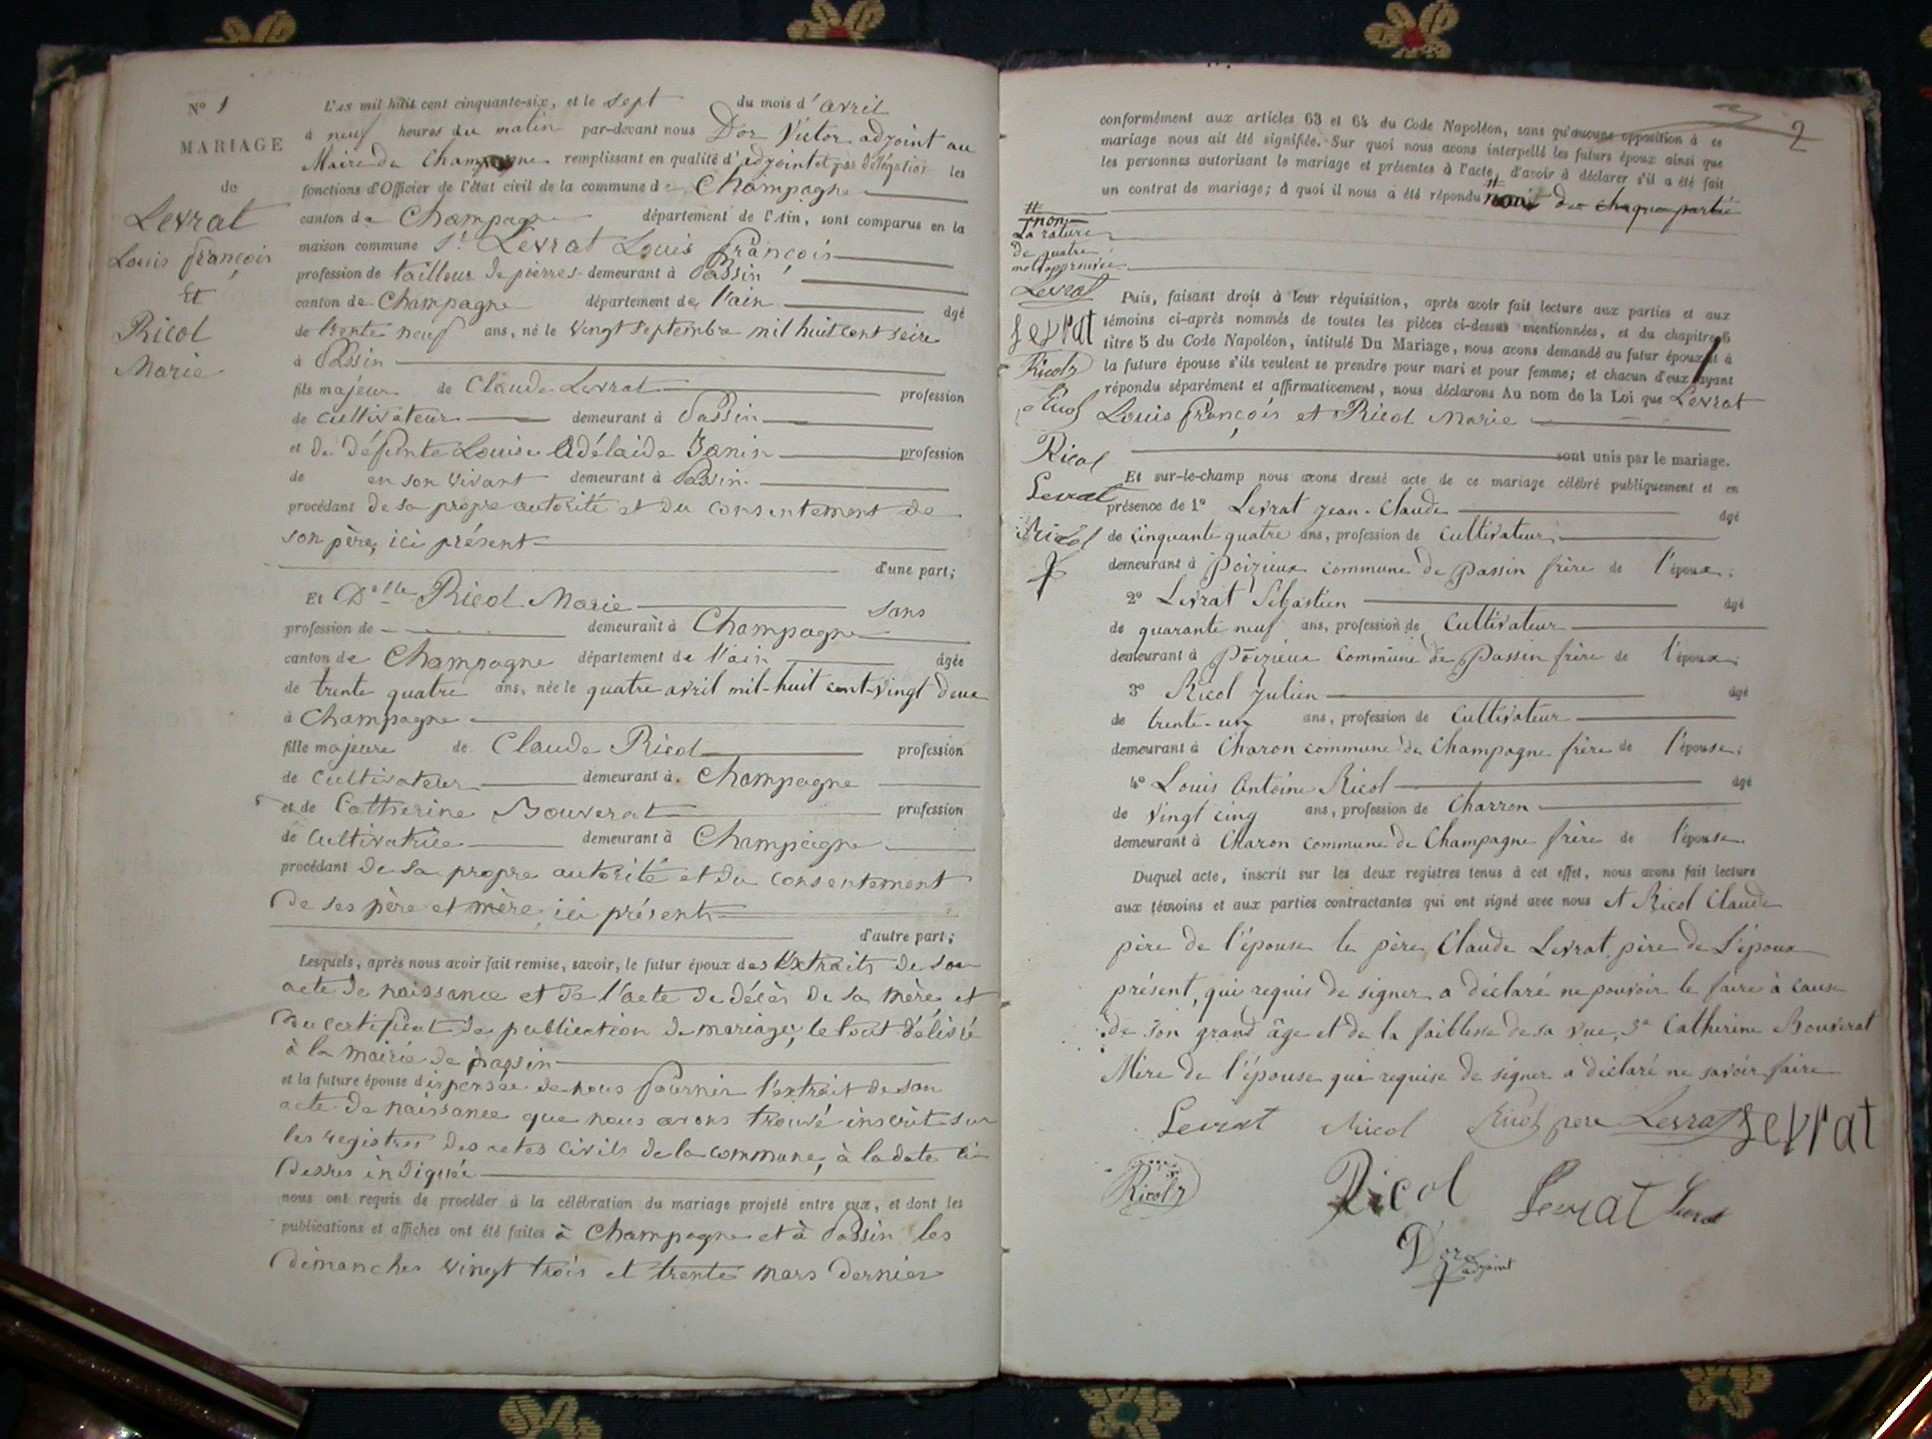 N° 1
MARIAGE
de
Levrat
Louis françois
Et
Ricol
Marie
L'an mil huit cent cinquante-six, et le sept du mois d'avril
à neuf heures du matin par-devant nous D'or Victor adjoint au
Maire de Champagne remplissant en qualité d'adjoint et par délégation les
fonctions d'Officier de l'état civil de la commune de Champagne
canton de Champagne département de l'Ain, sont comparus en la
maison commune Sr Levrat Louis françois
profession de tailleur de pierres demeurant à Passin
canton de Champagne département de l'ain âgé
de trente neuf ans, né le vingt septembre mil huit cent seize
à Passin
fils majeur de Claude Levrat profession
de cultivateur demeurant à Passin
et de défunte Louise Adélaide Janin profession
de en son vivant demeurant à Passin
procédant de sa propre autorité et du consentement de
son père, ici présent
d'une part;
Et Delle Ricol Marie sans
profession de demeurant à Champagne
canton de Champagne département de l'ain âgée
de trente quatre ans, née le quatre avril mil-huit cent-vingt deux
à Champagne
fille majeure de Claude Ricol profession
de cultivateur demeurant à Champagne
et de Catherine Bouverat profession
de cultivatrice demeurant à Champagne
procédant de sa propre autorité et du consentement
de ses père et mère, ici présents
d'autre part;
Lesquels, après nous avoir fait remise, savoir, le futur époux des Extraits de son
acte de naissance et de l'acte de décès de sa mère, et
du certificat de publication de mariage, le tout délivré
à la mairie de passin
et la future épouse dispensée de nous fournir l'extrait de son
acte de naissance que nous avons trouvé inscrit sur
les registres des actes civils de la commune, à la date ci
dessus indiquée
nous ont requis de procéder à la célébration du mariage projeté entre eux, et dont les
publications et affiches ont été faites à Champagne et à Passin les
dimanches vingt trois et trente mars dernier
2
conformément aux articles 63 et 64 du Code Napoléon, sans qu'aucune opposition à ce
mariage nous ait été signifiée. Sur quoi nous avons interpellé les futurs époux ainsi que
les personnes autorisant le mariage et présentes à l'acte, d'avoir à déclarer s'il a été fait
un contrat de mariage; à quoi il nous a été répondu de chaque partie
non
La rature
de quatre
mots approuvée
Levrat
Levrat
Ricol
Ricol
Ricol
Levrat
Ricol
Puis, faisant droit à leur réquisition, après avoir fait lecture aux parties et aux
témoins ci-après nommés de toutes les pièces ci-dessus mentionnées, et du chapitre 6
titre 5 du Code Napoléon, intitulé Du Mariage, nous avons demandé au futur époux et à
la future épouse s'ils veulent se prendre pour mari et pour femme; et chacun d'eux ayant
répondu séparément et affirmativement, nous déclarons Au nom de la Loi que Levrat
Louis françois et Ricol Marie
sont unis par le mariage.
Et sur-le-champ nous avons dressé acte de ce mariage célébré publiquement et en
présence de 1° Levrat Jean-Claude âgé
de cinquante quatre ans, profession de cultivateur
demeurant à Poizieux commune de Passin frère de l'époux;
2° Levrat Sébastien âgé
de quarante neuf ans, profession de cultivateur
demeurant à Poizieux commune de Passin frère de l'époux;
3° Ricol Julien âgé
de trente-un ans, profession de cultivateur
demeurant à Charon commune de Champagne frère de l'épouse;
4° Louis Antoine Ricol âgé
de vingt cinq ans, profession de Charron
demeurant à Charon commune de Champagne frère de l'épouse.
Duquel acte, inscrit sur les deux registres tenus à cet effet, nous avons fait lecture
aux témoins et aux parties contractantes qui ont signé avec nous et Ricol Claude
père de l'épouse le père, Claude Levrat père de l'époux
présent, qui requis de signer a déclaré ne pouvoir le faire à cause
de son grand âge et de la faiblesse de sa vue, Catherine Bouverat
Mère de l'épouse qui requise de signer a déclaré ne savoir faire
Levrat Ricol Ricol pere Levrat Levrat
Ricol Ricol Levrat Levrat
D'or
adjoint